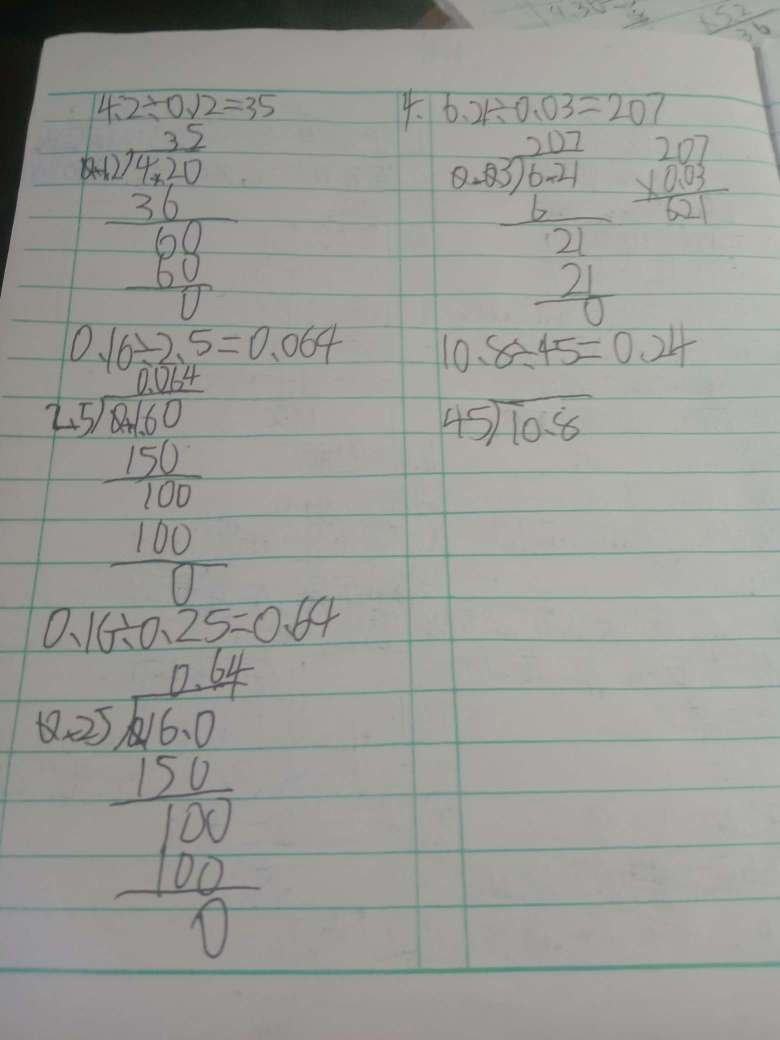 4.2÷0.12=35
35
0.12)4.20
36
60
60
0
0.16÷2.5=0.064
0.064
2.5)0.160
150
100
100
0
0.16÷0.25=0.64
0.64
0.25)0.16.0
150
100
100
0
4. 6.21÷0.03=207
207
0.03)6.21
6
21
21
0
207
×0.03
621
10.8÷45=0.24
45)10.8